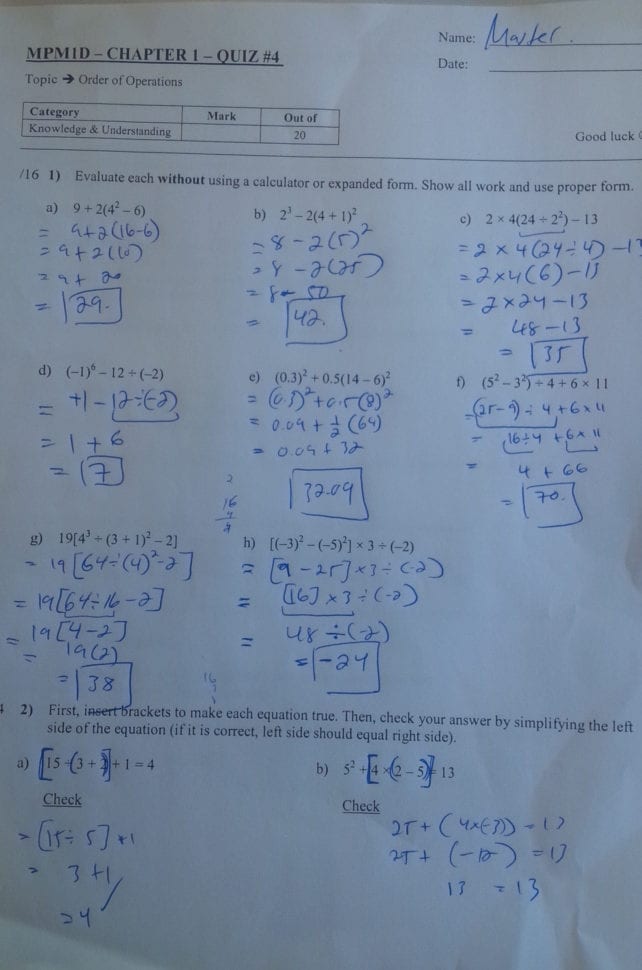 Name: Master.
MPM1D – CHAPTER 1 – QUIZ #4
Date:
Topic ➔ Order of Operations
Category Mark Out of
Knowledge & Understanding 20
Good luck
/16 1) Evaluate each without using a calculator or expanded form. Show all work and use proper form.
a) 9 + 2(4² – 6)
= 9+2(16-6)
= 9+2(10)
= 9+ 20
= 29.
b) 2³ – 2(4 + 1)²
= 8 - 2(5)²
= 8 - 2(25)
= 8 - 50
= 42.
c) 2 × 4(24 ÷ 2²) – 13
= 2 × 4(24÷4) -13
= 2×4(6) -13
= 2×24 -13
= 48-13
= 35
d) (–1)⁶ – 12 ÷ (–2)
= +1 - 12÷(-2)
= 1 + 6
= 7
e) (0.3)² + 0.5(14 – 6)²
= (0.3)²+0.5(8)²
= 0.09 + ½ (64)
= 0.09 + 32
32.09
f) (5² – 3²) ÷ 4 + 6 × 11
=(25-9) ÷ 4+6×11
= 16÷4 +6×11
= 4 + 66
= 70.
2
16
4
8
g) 19[4³ ÷ (3 + 1)² – 2]
= 19[64÷(4)²-2]
= 19[64÷16-2]
= 19[4-2]
= 19(2)
= 38
h) [(–3)² – (–5)²] × 3 ÷ (–2)
= [9 - 25]×3÷(-2)
= [16]×3÷(-2)
= 48÷(-2)
= -24
16
4 2) First, insert brackets to make each equation true. Then, check your answer by simplifying the left
side of the equation (if it is correct, left side should equal right side).
a) [15 ÷(3 + 2)]+ 1 = 4
Check
= [15÷5]+1
= 3+1
=4
b) 5² +[4 ×(2 – 5)]= 13
Check
25+ (4×(-3)) =13
25+ (-12) =13
13 =13